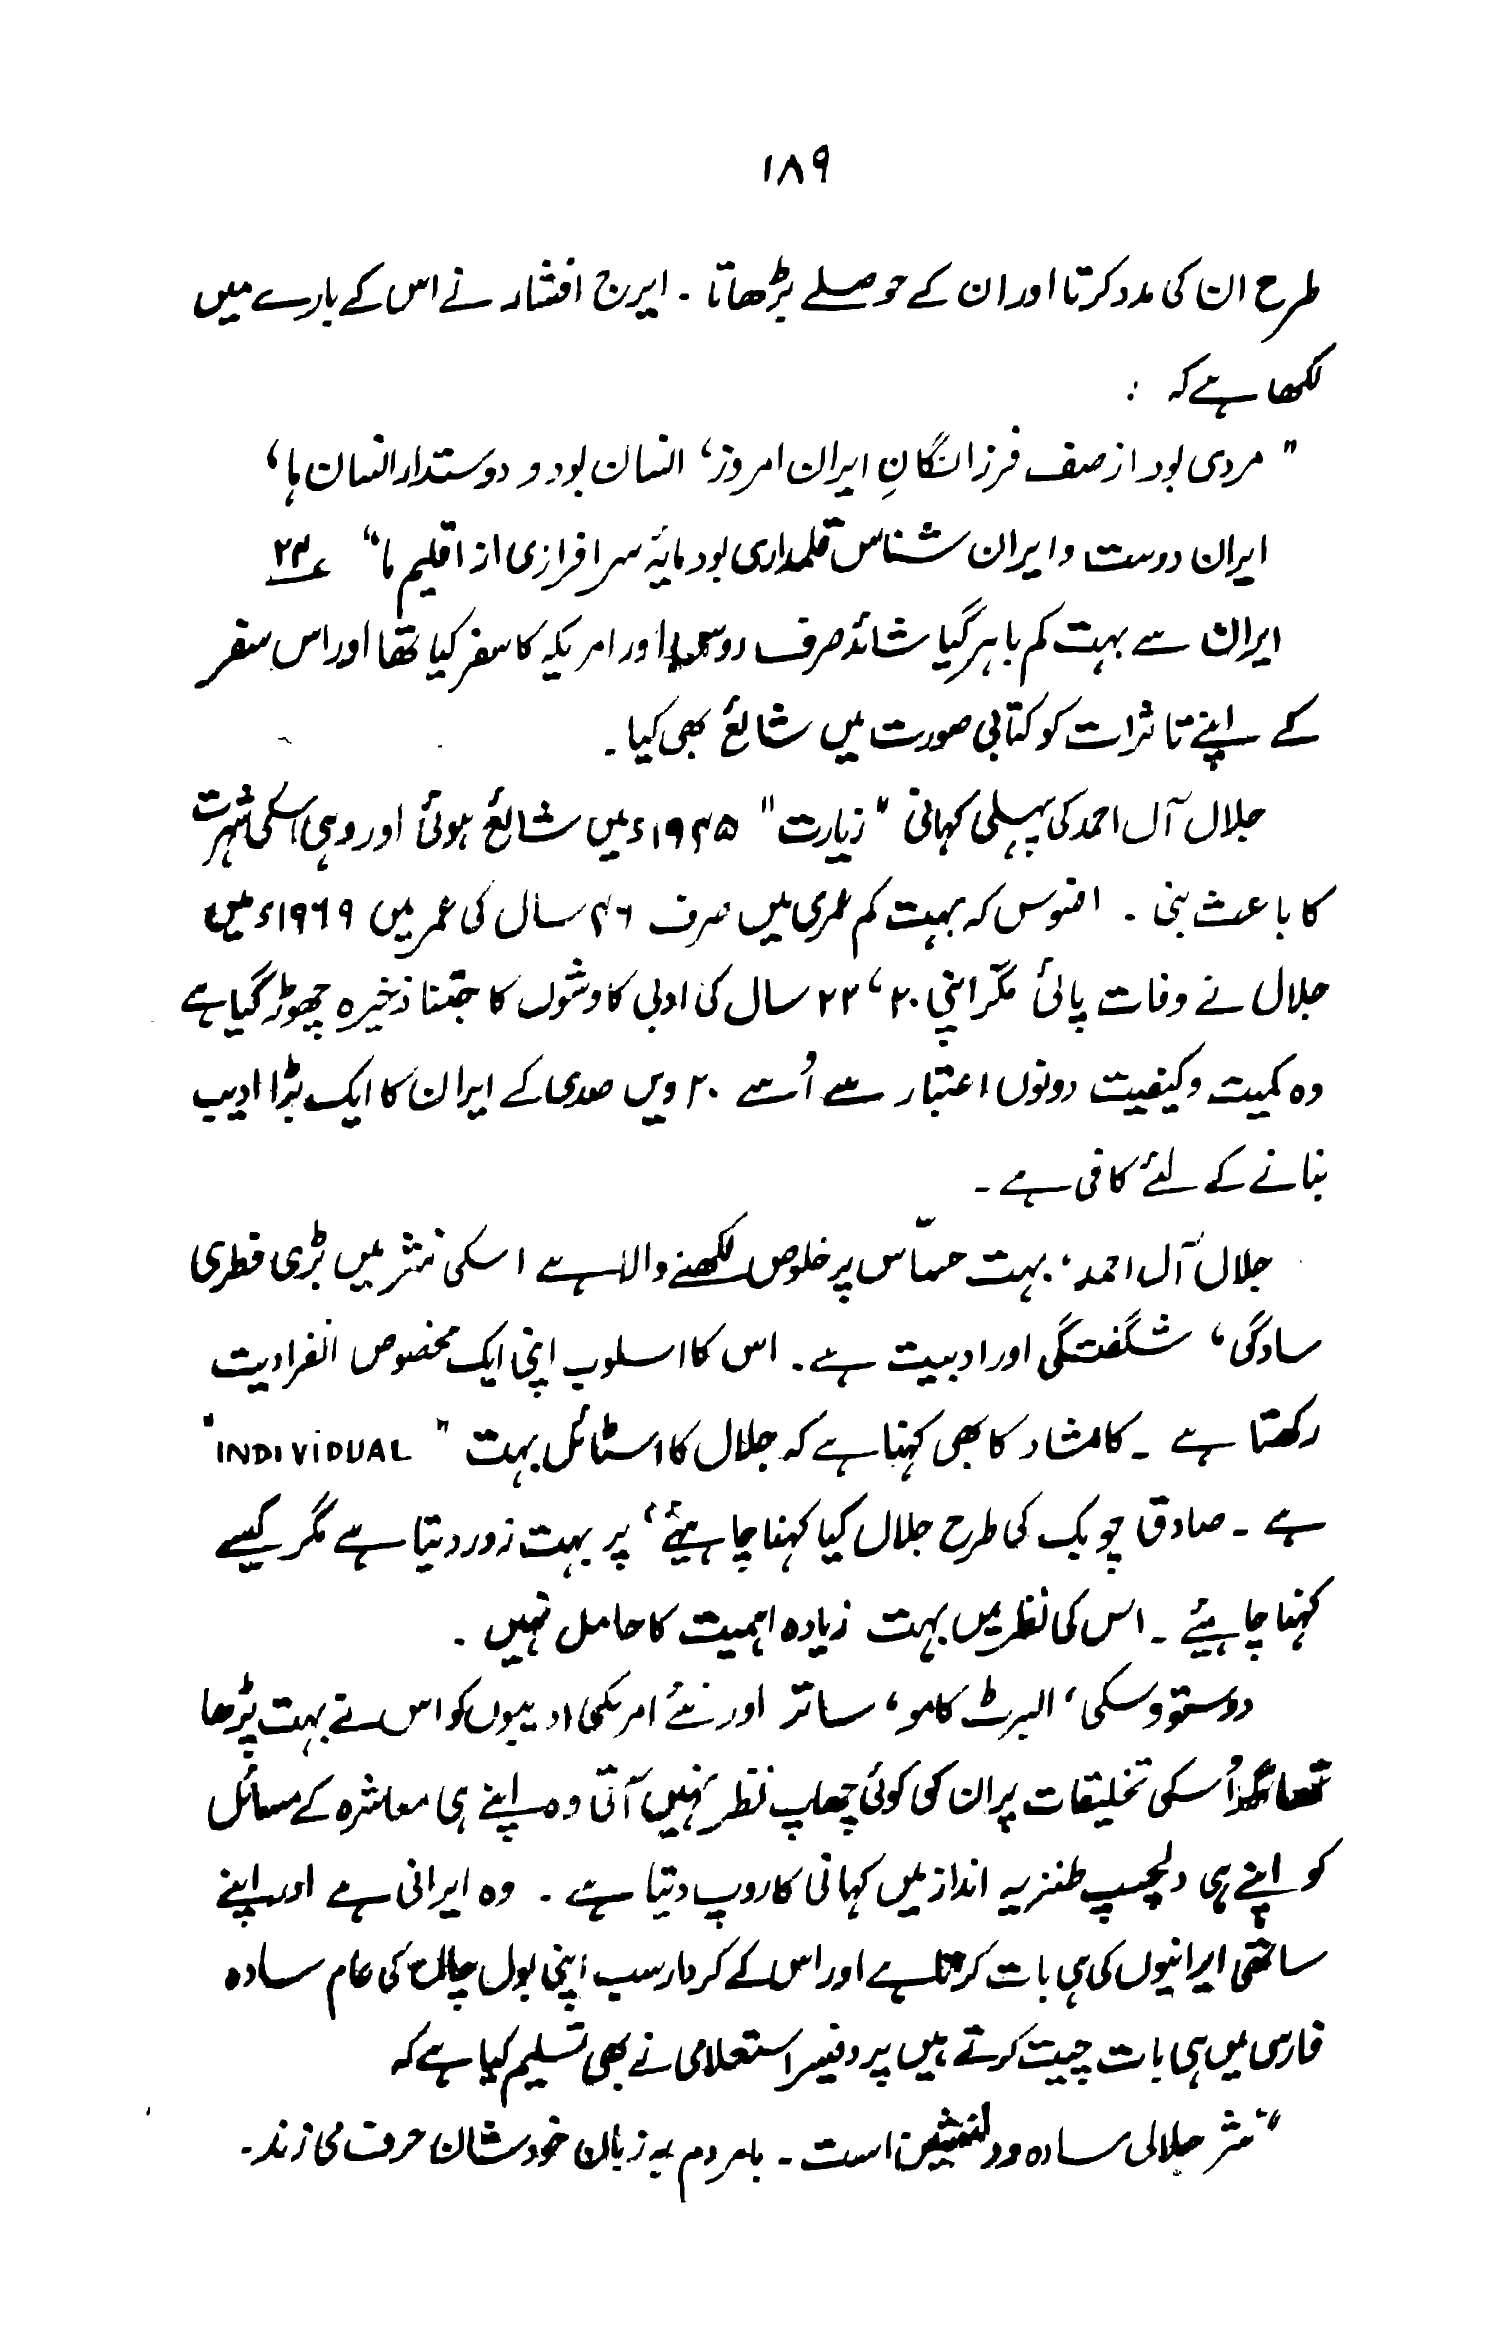 ۱۸۹
طرح ان کی مدد کرتا اور ان کے حوصلے بڑھاتا ۔ ایرج افشار نے اس کے بارے میں
لکھا ہے کہ :
" مردی بود از صف فرزانگانِ ایران امروز، انسان بود و دوستدار انسان ہا،
ایران دوست و ایران شناس قلمداری بود مایۂ سرافرازی از اقلیم ما" ۲۳؏
ایران سے بہت کم باہر گیا شائد صرف روس اور امریکہ کا سفر کیا تھا اور اس سفر
کے اپنے تاثرات کو کتابی صورت میں شائع بھی کیا ۔
جلال آل احمد کی پہلی کہانی "زیارت" ۱۹۴۵ء میں شائع ہوئی اور وہی اسکی شہرت
کا باعث بنی ۔ افسوس کہ بہت کم عمری میں صرف ۴۶ سال کی عمر میں ۱۹۶۹ء میں
جلال نے وفات پائی مگر اپنی ۲۰، ۲۲ سال کی ادبی کاوشوں کا جتنا ذخیرہ چھوڑ گیا ہے
وہ کمیت و کیفیت دونوں اعتبار سے اُسے ۲۰ ویں صدی کے ایران کا ایک بڑا ادیب
بنانے کے لئے کافی ہے ۔
جلال آل احمد، بہت حساّس پر خلوص لکھنے والا ہے اسکی نثر میں بڑی فطری
سادگی، شگفتگی اور ادبیت ہے ۔ اس کا اسلوب اپنی ایک مخصوص انفرادیت
رکھتا ہے ۔ کامشاد کا بھی کہنا ہے کہ جلال کا اسٹائل بہت " INDIVIDUAL "
ہے ۔ صادق چوبک کی طرح جلال کیا کہنا چاہیئے، پر بہت زور دیتا ہے مگر کیسے
کہنا چاہیئے ۔ اس کی نظر میں بہت زیادہ اہمیت کا حامل نہیں ۔
دوستووسکی، البرٹ کامو، ساتر اور نئے امریکی ادیبوں کو اس نے بہت پڑھا
تھا مگر اُسکی تخلیقات پر ان کی کوئی چھاپ نظر نہیں آتی وہ اپنے ہی معاشرہ کے مسائل
کو اپنے ہی دلچسپ طنزیہ انداز میں کہانی کا روپ دیتا ہے ۔ وہ ایرانی ہے اور اپنے
ساتھی ایرانیوں کی ہی بات کرتا ہے اور اس کے کردار سب اپنی بول چال کی عام سادہ
فارسی میں ہی بات چیت کرتے ہیں پروفیسر استعلامی نے بھی تسلیم کیا ہے کہ
"نثر جلالی سادہ ودلنشین است ۔ بامردم بہ زبان خودشان حرف می زند ۔